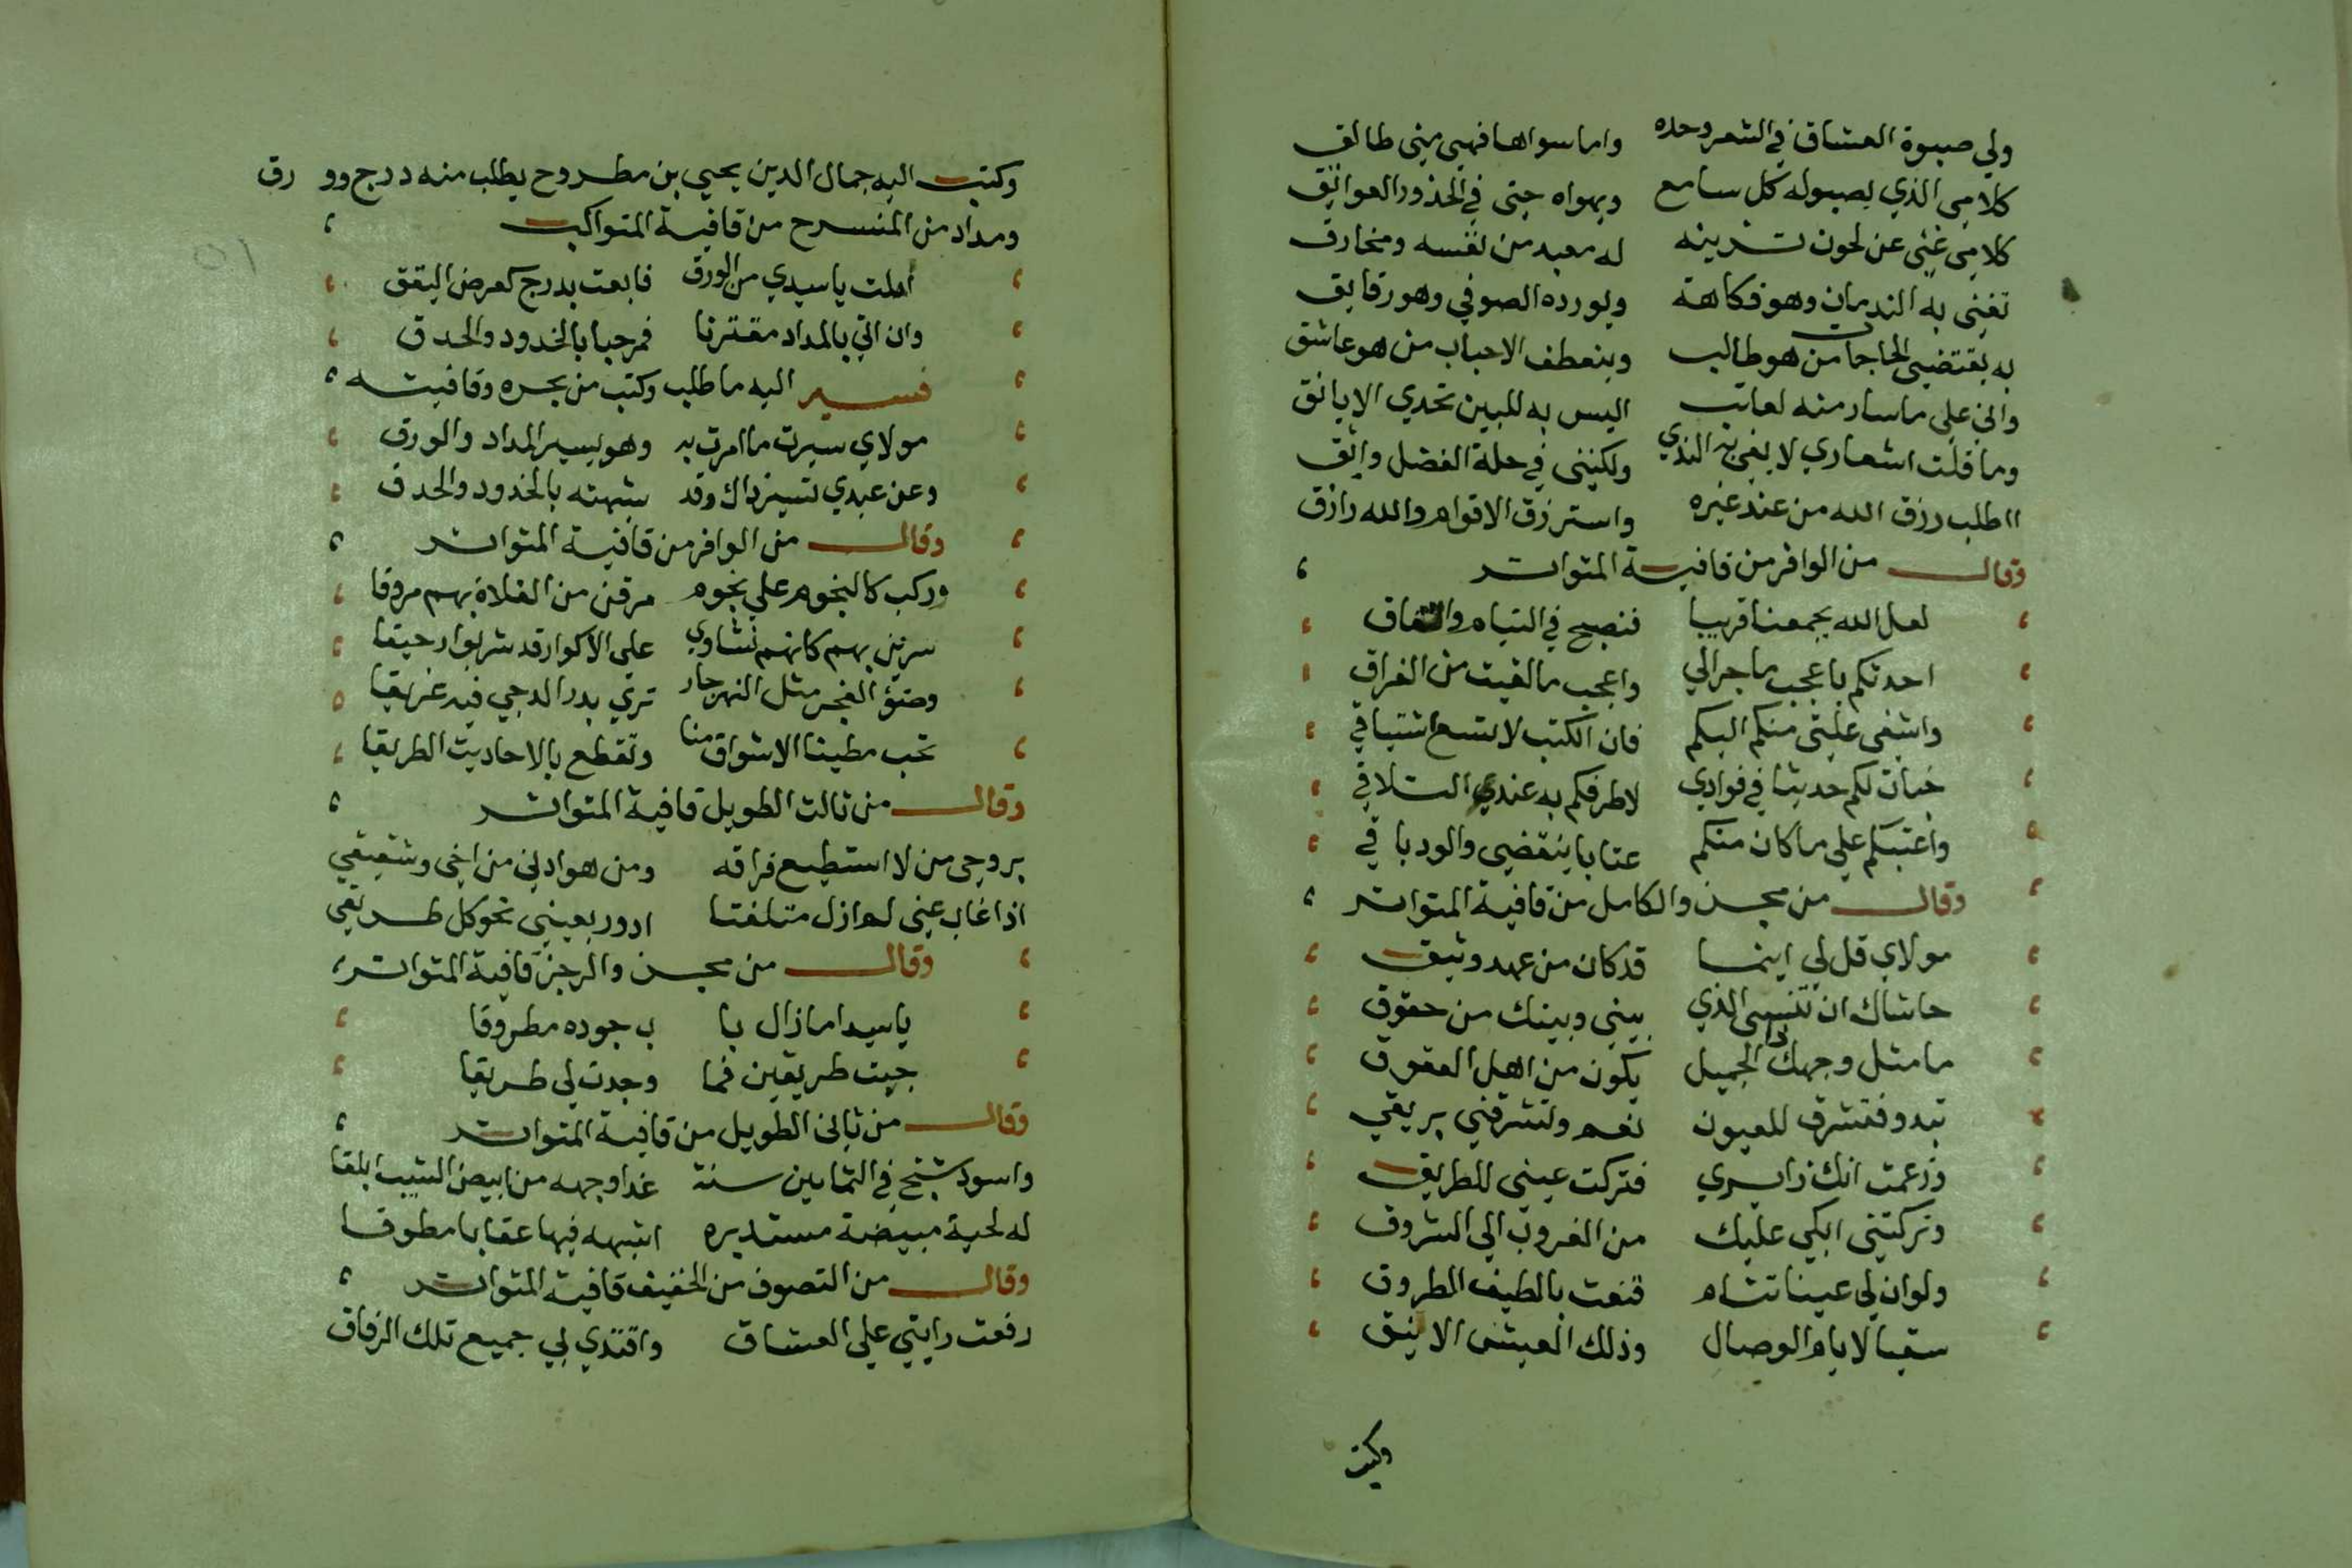 ولي صبوة العشاق في الشعر وحده واما سواها فهي مني طالق
كلامي الذي يصبوله كل سامع ويهواه حتى في الخذور العواتق
كلامي غني عن لحون تزينه له معبد من نفسه ومخارق
تغنى به الندمان وهو فكاهة ويورده الصوفي وهو رقايق
به يقتضي الحاجات من هو طالب ويتعطف الاحباب من هو عاشق
واني على ما سار منه لعاتب اليس به للبين تحدي الايانق
وما قلت اشعاري لابغي به الندي ولكنني في حلة الفضل واثق
ااطلب رزق الله من عند غيره واسترزق الاقوام والله رازق
وقال من الوافر من قافية المتواتر
لعل الله يجمعنا قريبا فنصبح في التيام واتفاق
احدثكم باعجب ما جرالي واعجب ما لقيت من الفراق
واشفي غلتي منكم اليكم فان الكتب لا تسع اشتياقي
خبات لكم حديثا في فوادي لاطرفكم به عندي التلاقي
واعتبكم علي ما كان منكم عتابا ينقضي والود باقي
وقال من مجزو الكامل من قافية المتواتر
مولاي قل لي اينما قد كان من عهد وثيق
حاشاك ان تنسى الذي بيني وبينك من حقوق
ما مثل وجهك ذا الجميل يكون من اهل العقوق
تبدو فتشرق للعيون نعم وتشرقني بريقي
وزعمت انك زايري فتركت عيني للطريق
وتركتني ابكي عليك من الغروب الي الشروق
ولو ان لي عينا تنام قنعت بالطيف المطروق
سقيا لايام الوصال وذلك العيش الانيق
وكتب
وكتب اليه جمال الدين يحيي بن مطروح يطلب منه درج وورق
ومداد من المنسرح من قافية المتواكب
املت يا سيدي من الورق فابعث بدرج كعرض اليقق
وان اتي بالمداد مقترنا فمرحبا بالخدود والحدق
فسير اليه ما طلب وكتب من بحره وقافيته
مولاي سيرت ما امرت به وهو يسير المداد والورق
وعز عندي تسيير ذاك وقد شبهته بالخدود والحدق
وقال من الوافر من قافية المتواتر
وركب كالنجوم علي نجوم مرقن من الفلاة بهم مروقا
سرين بهم كانهم نشاوي علي الاكوار قد شربوا رحيقا
وضؤ الفجر مثل النهر جار تري بدر الدجي فيه غريقا
تحب مطينا الاشواق منا وتقطع بالاحاديث الطريقا
وقال من ثالث الطويل قافية المتواتر
بروحي من لا استطيع فراقه ومن هو ادني من اخي وشقيقي
اذا غاب عني لم ازل متلفتا ادور بعيني نحو كل طريقي
وقال من مجزو الرجز قافية المتواتر
يا سيدا ما زال با ب جوده مطروقا
جيت طريقين فما وجدت لي طريقا
وقال من ثاني الطويل من قافية المتواتر
واسود شيخ في الثمانين سنة غدا وجهه من ابيض الشيب ابلقا
له لحية مبيضة مستديره اشبهه فيها عقابا مطوقا
وقال من التصوف من الخفيف قافية المتواتر
رفعت رايتي علي العشاق واقتدي بي جميع تلك الرفاق